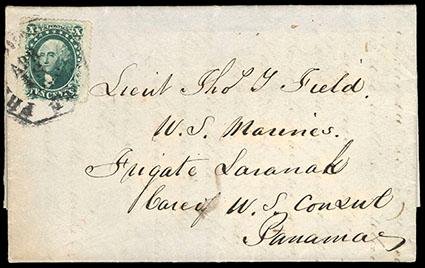 Lieut Thos. Y Field.
U.S. Marines.
Frigate Saranak
Care of U.S. Consul
Panama